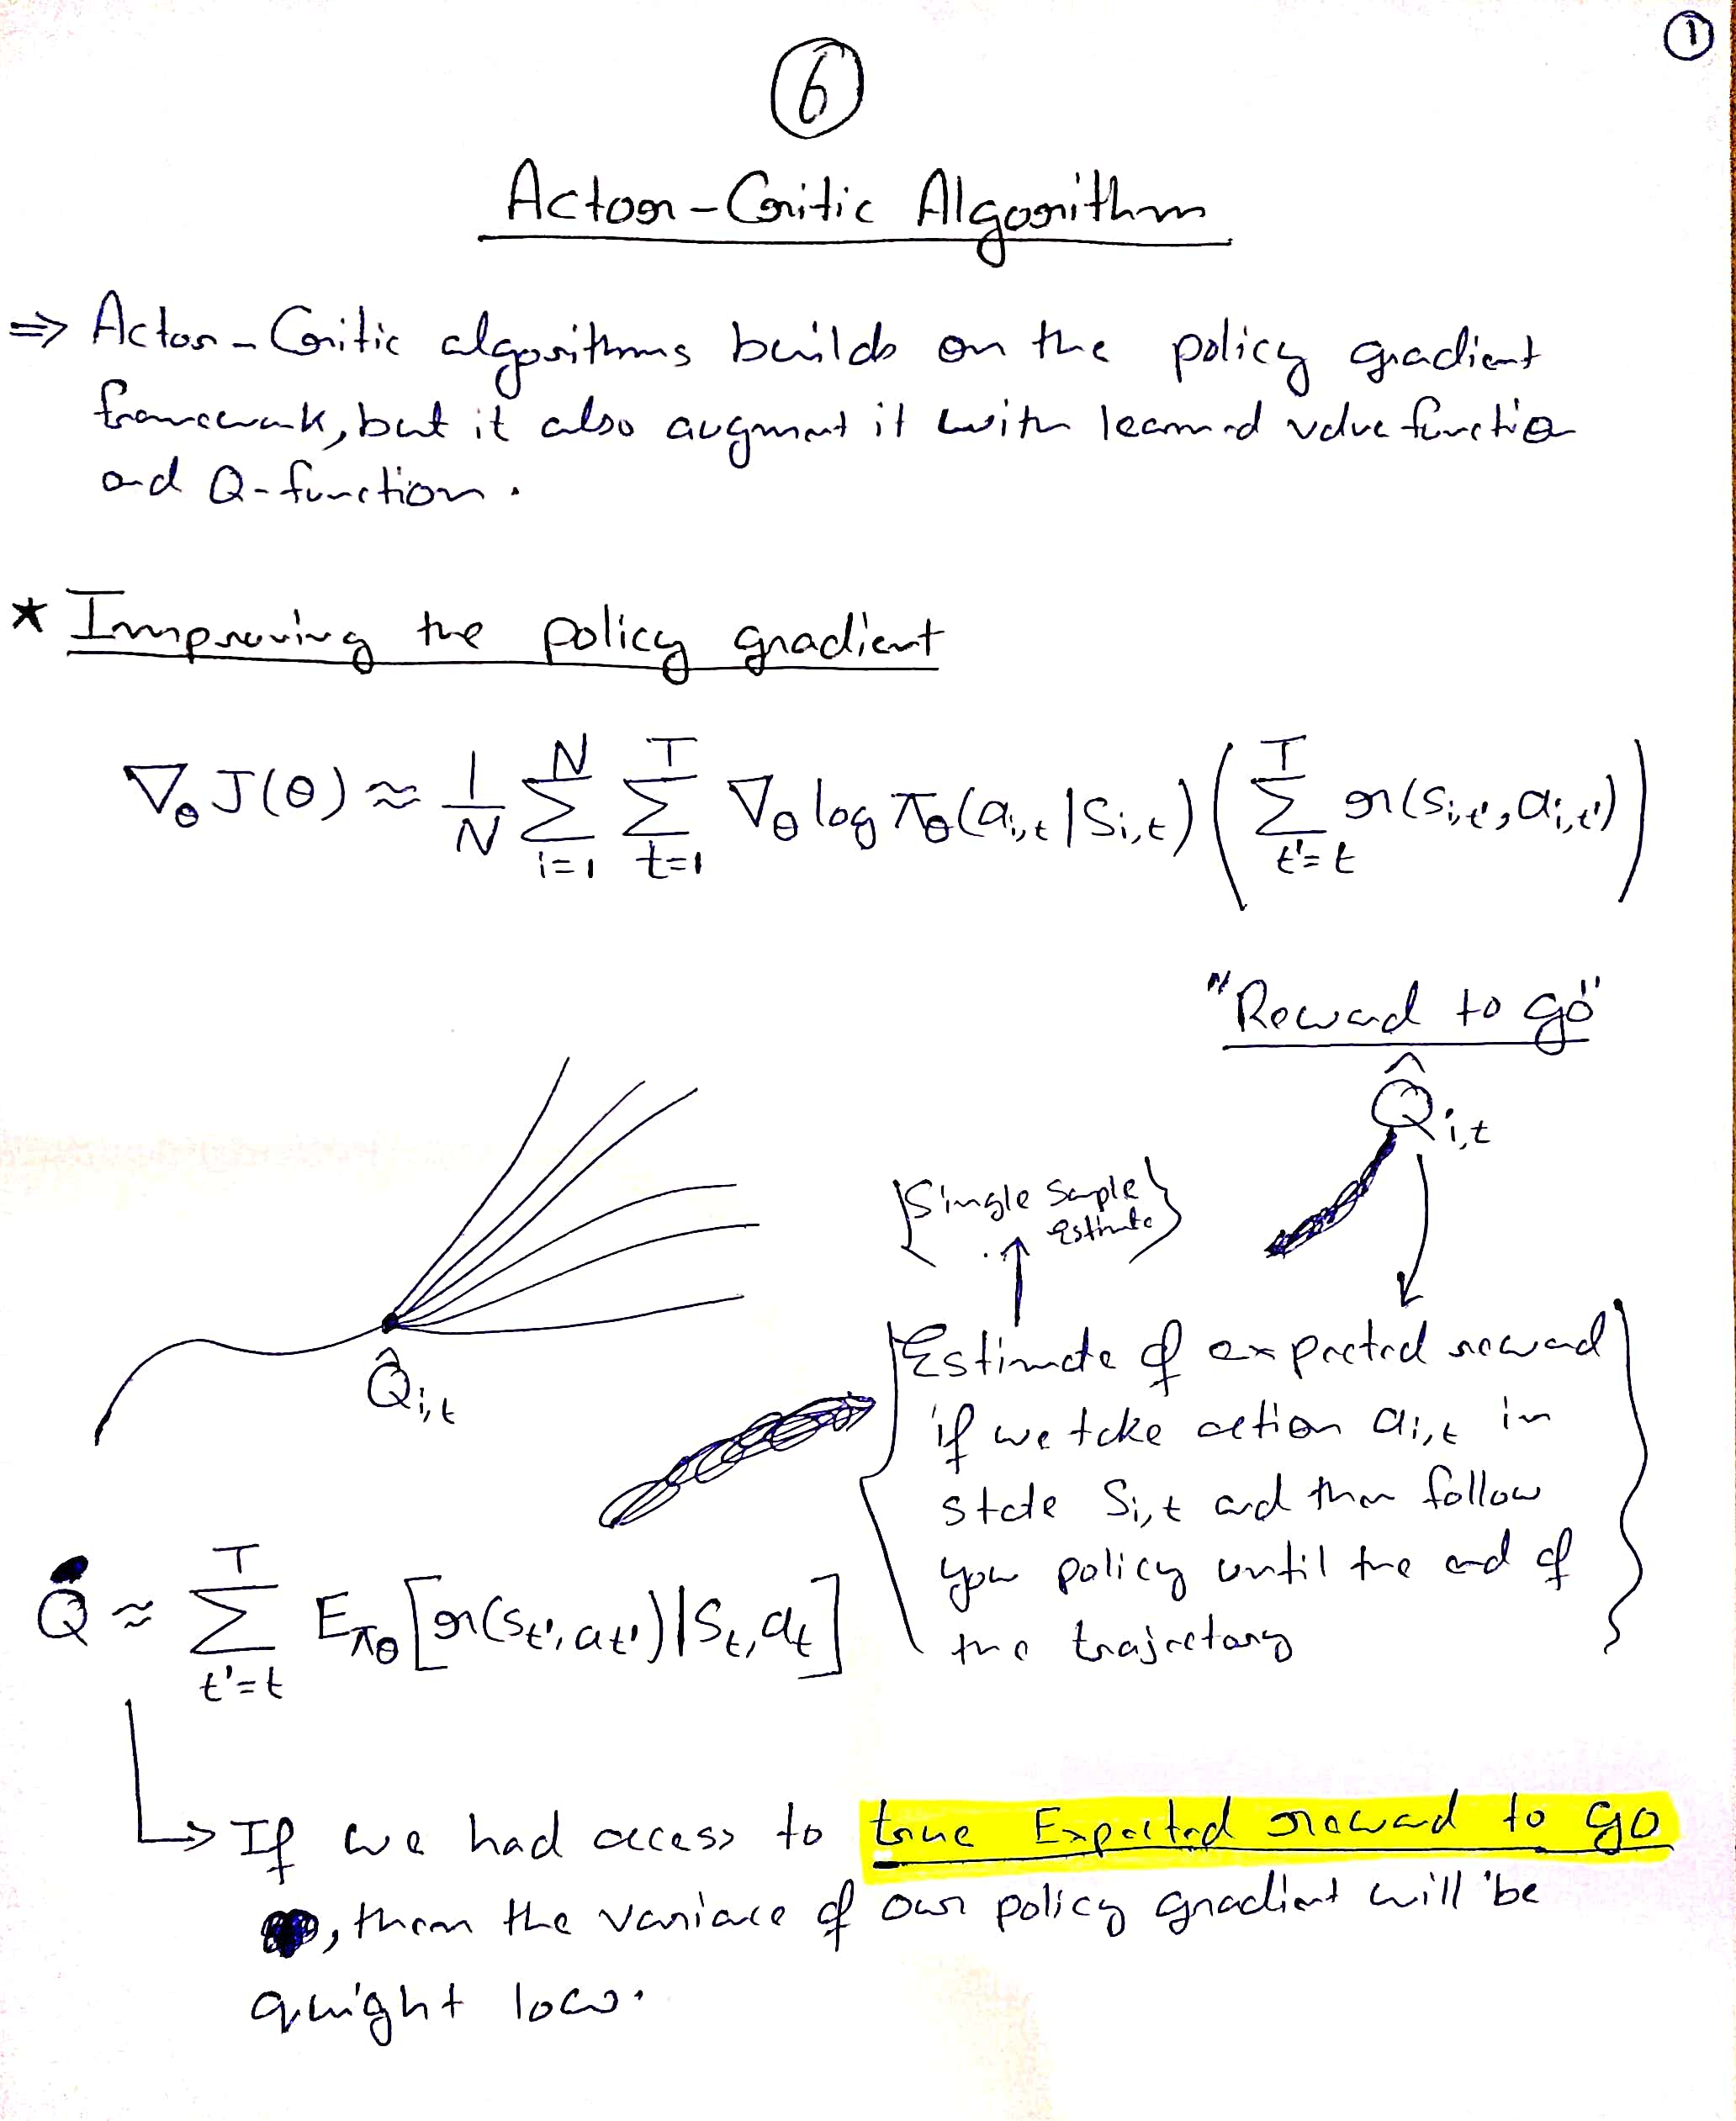 ①
⑥
Actor-Critic Algorithm
⇒ Actor-Critic algorithms builds on the policy gradient
framework, but it also augment it with learned value function
and Q-function.
* Improving the policy gradient
∇_θ J(θ) ≈ 1/N Σ_{i=1}^{N} Σ_{t=1}^{T} ∇_θ log π_θ(a_{i,t}|s_{i,t}) ( Σ_{t'=t}^{T} r(s_{i,t'}, a_{i,t'}) )
"Reward to go"
Q̂_{i,t}
{Single Sample
Estimate}
Q̂_{i,t}
{Estimate of expected reward
if we take action a_{i,t} in
state s_{i,t} and then follow
you policy until the end of
the trajectory}
Q ≈ Σ_{t'=t}^{T} E_{π_θ}[r(s_{t'}, a_{t'})|s_t, a_t]
↳ If we had access to true Expected reward to go
, then the variance of our policy gradient will be
quight low.